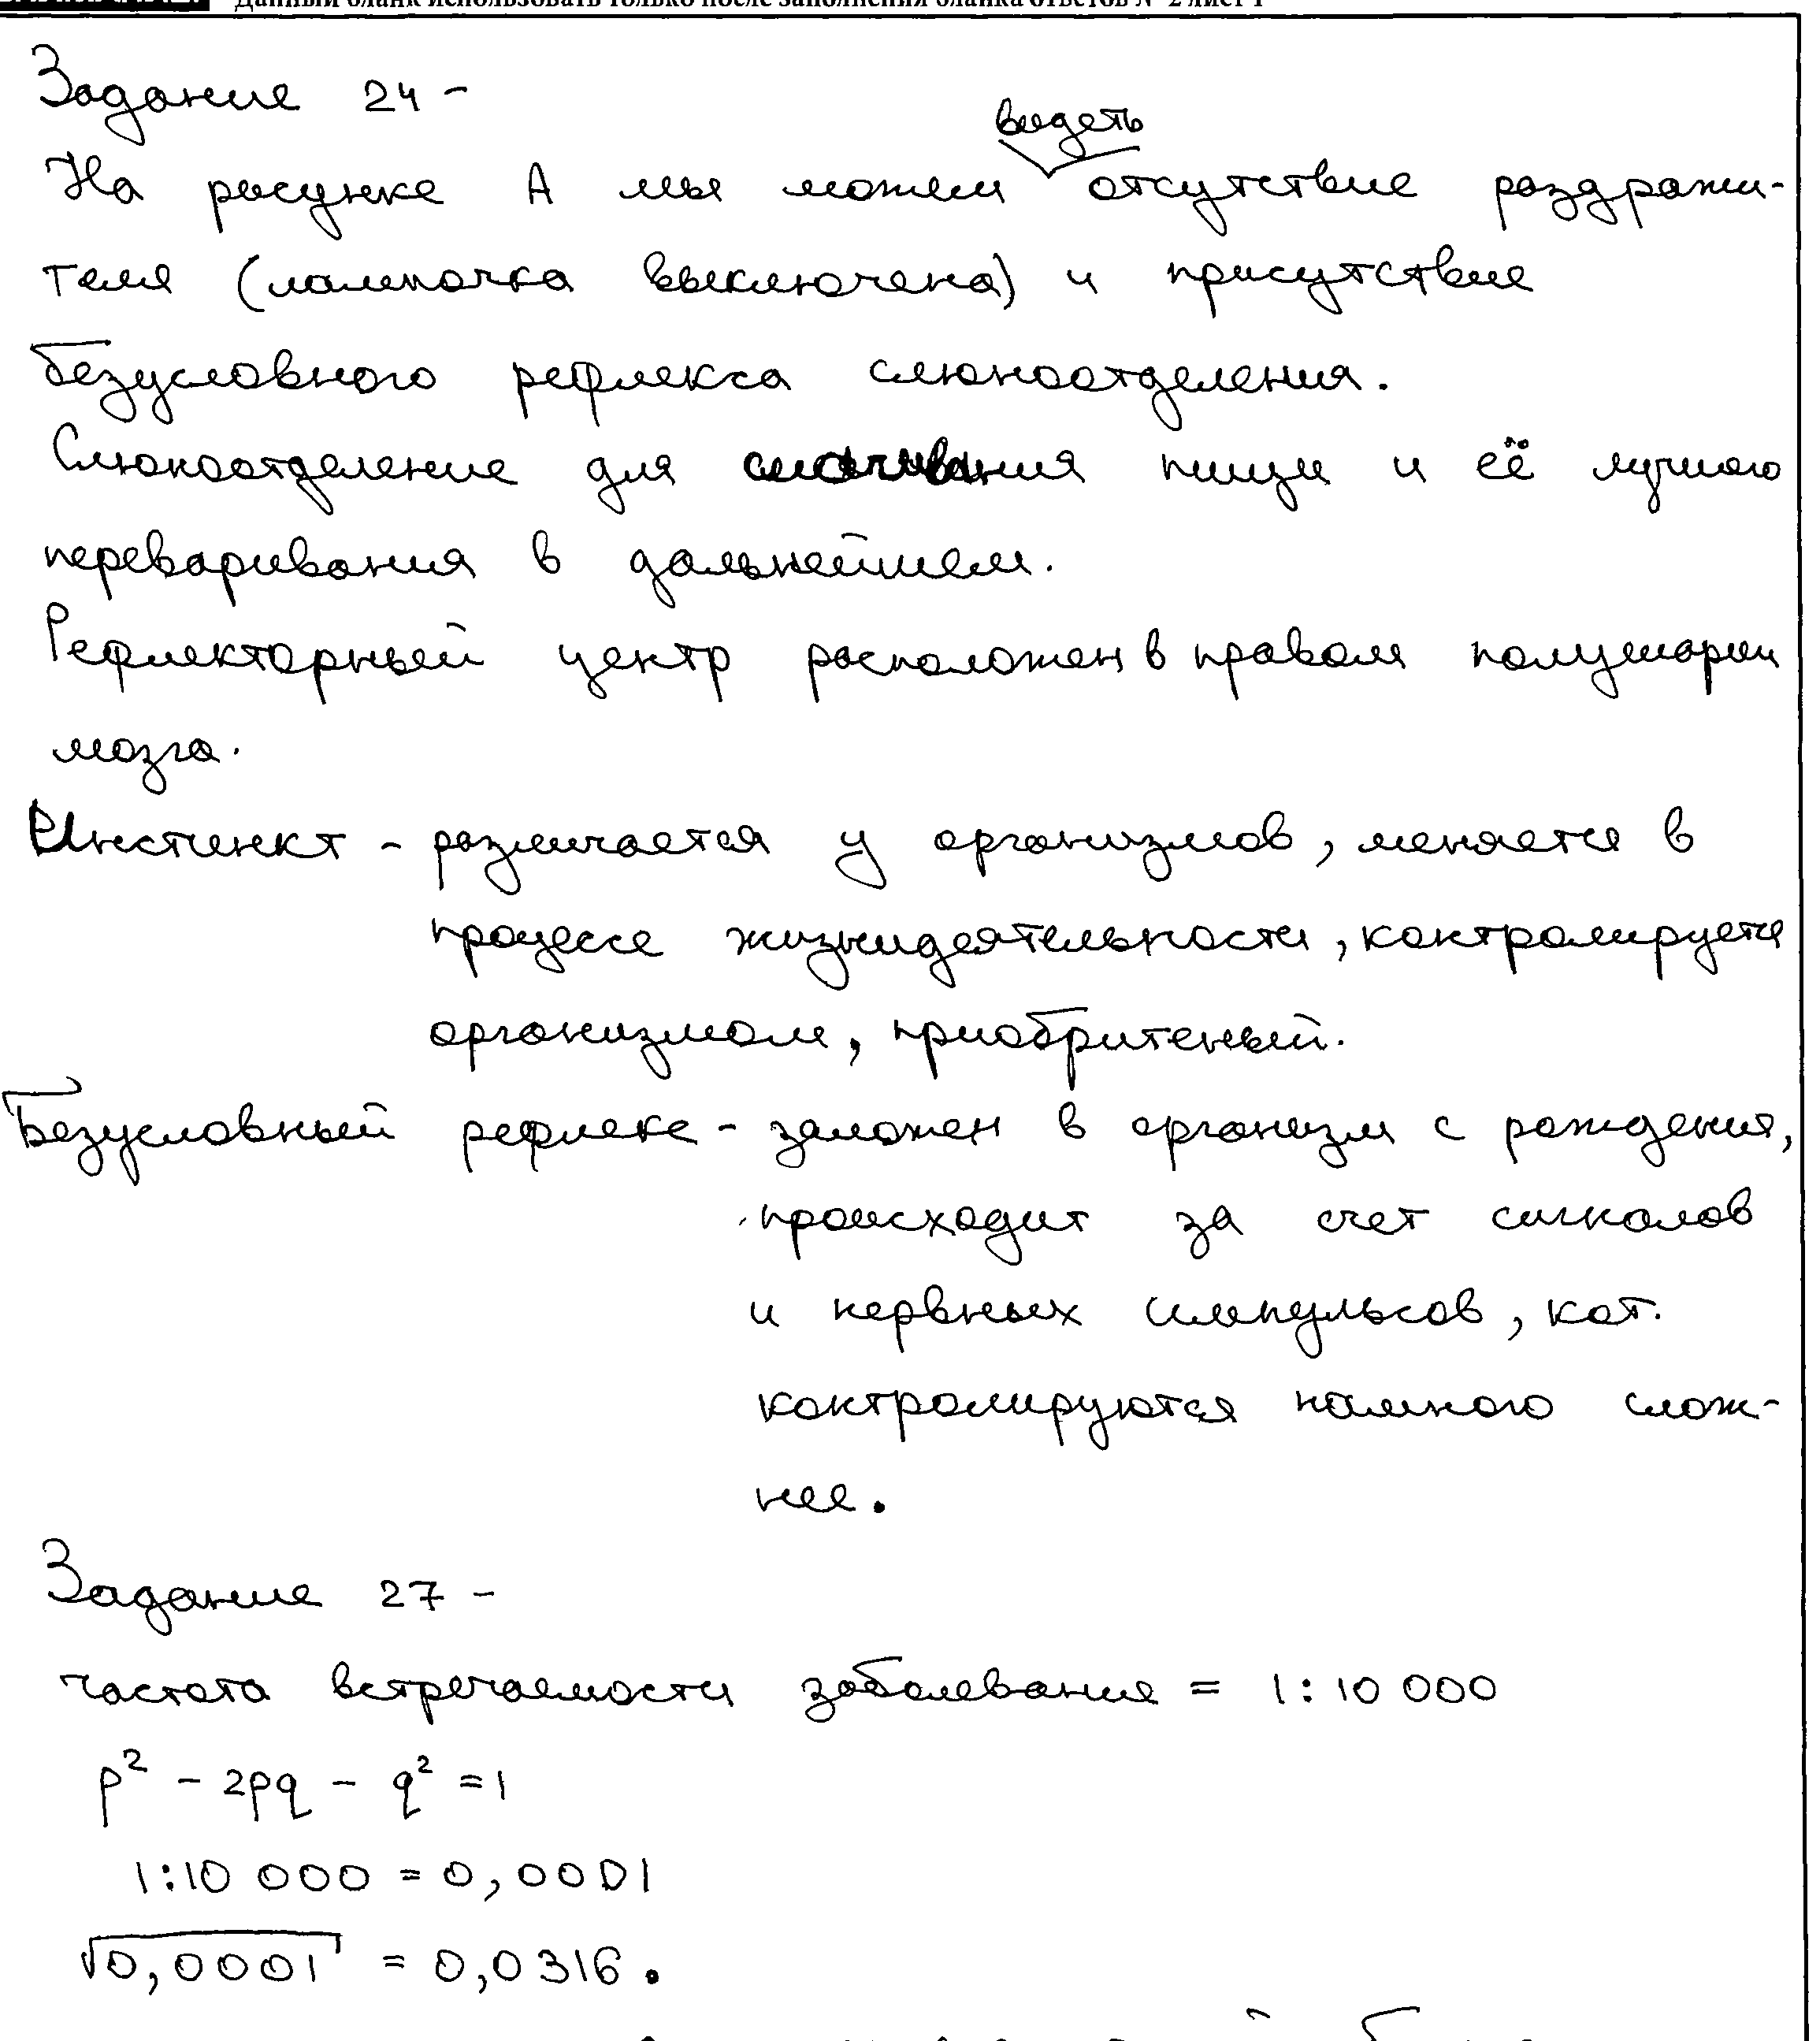 Данный бланк использовать только после заполнения бланка ответов № 2 лист 1
Задание 24 -
видеть
На рисунке А мы можем отсутствие раздражи-
теля (лампочка выключена) и присутствие
безусловного рефлекса слюноотделения.
Слюноотделение для смачивания пищи и её лучшего
переваривания в дальнейшем.
Рефлекторный центр расположен в правом полушарии
мозга.
Инстинкт - различается у организмов, меняется в
процессе жизнидеятельности, контролируется
организмом, приобритеный.
Безусловный рефлекс - заложен в организм с рождения,
происходит за счет сигналов
и нервных импульсов, кот.
контролируются намного слож-
нее.
Задание 27 -
частота встречаемости заболевание = 1:10 000
p² - 2pq - q² = 1
1:10 000 = 0,0001
√0,0001 = 0,0316.